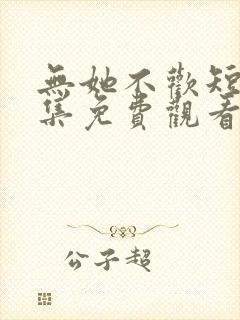 無她不歡短
集免費觀看
公子超